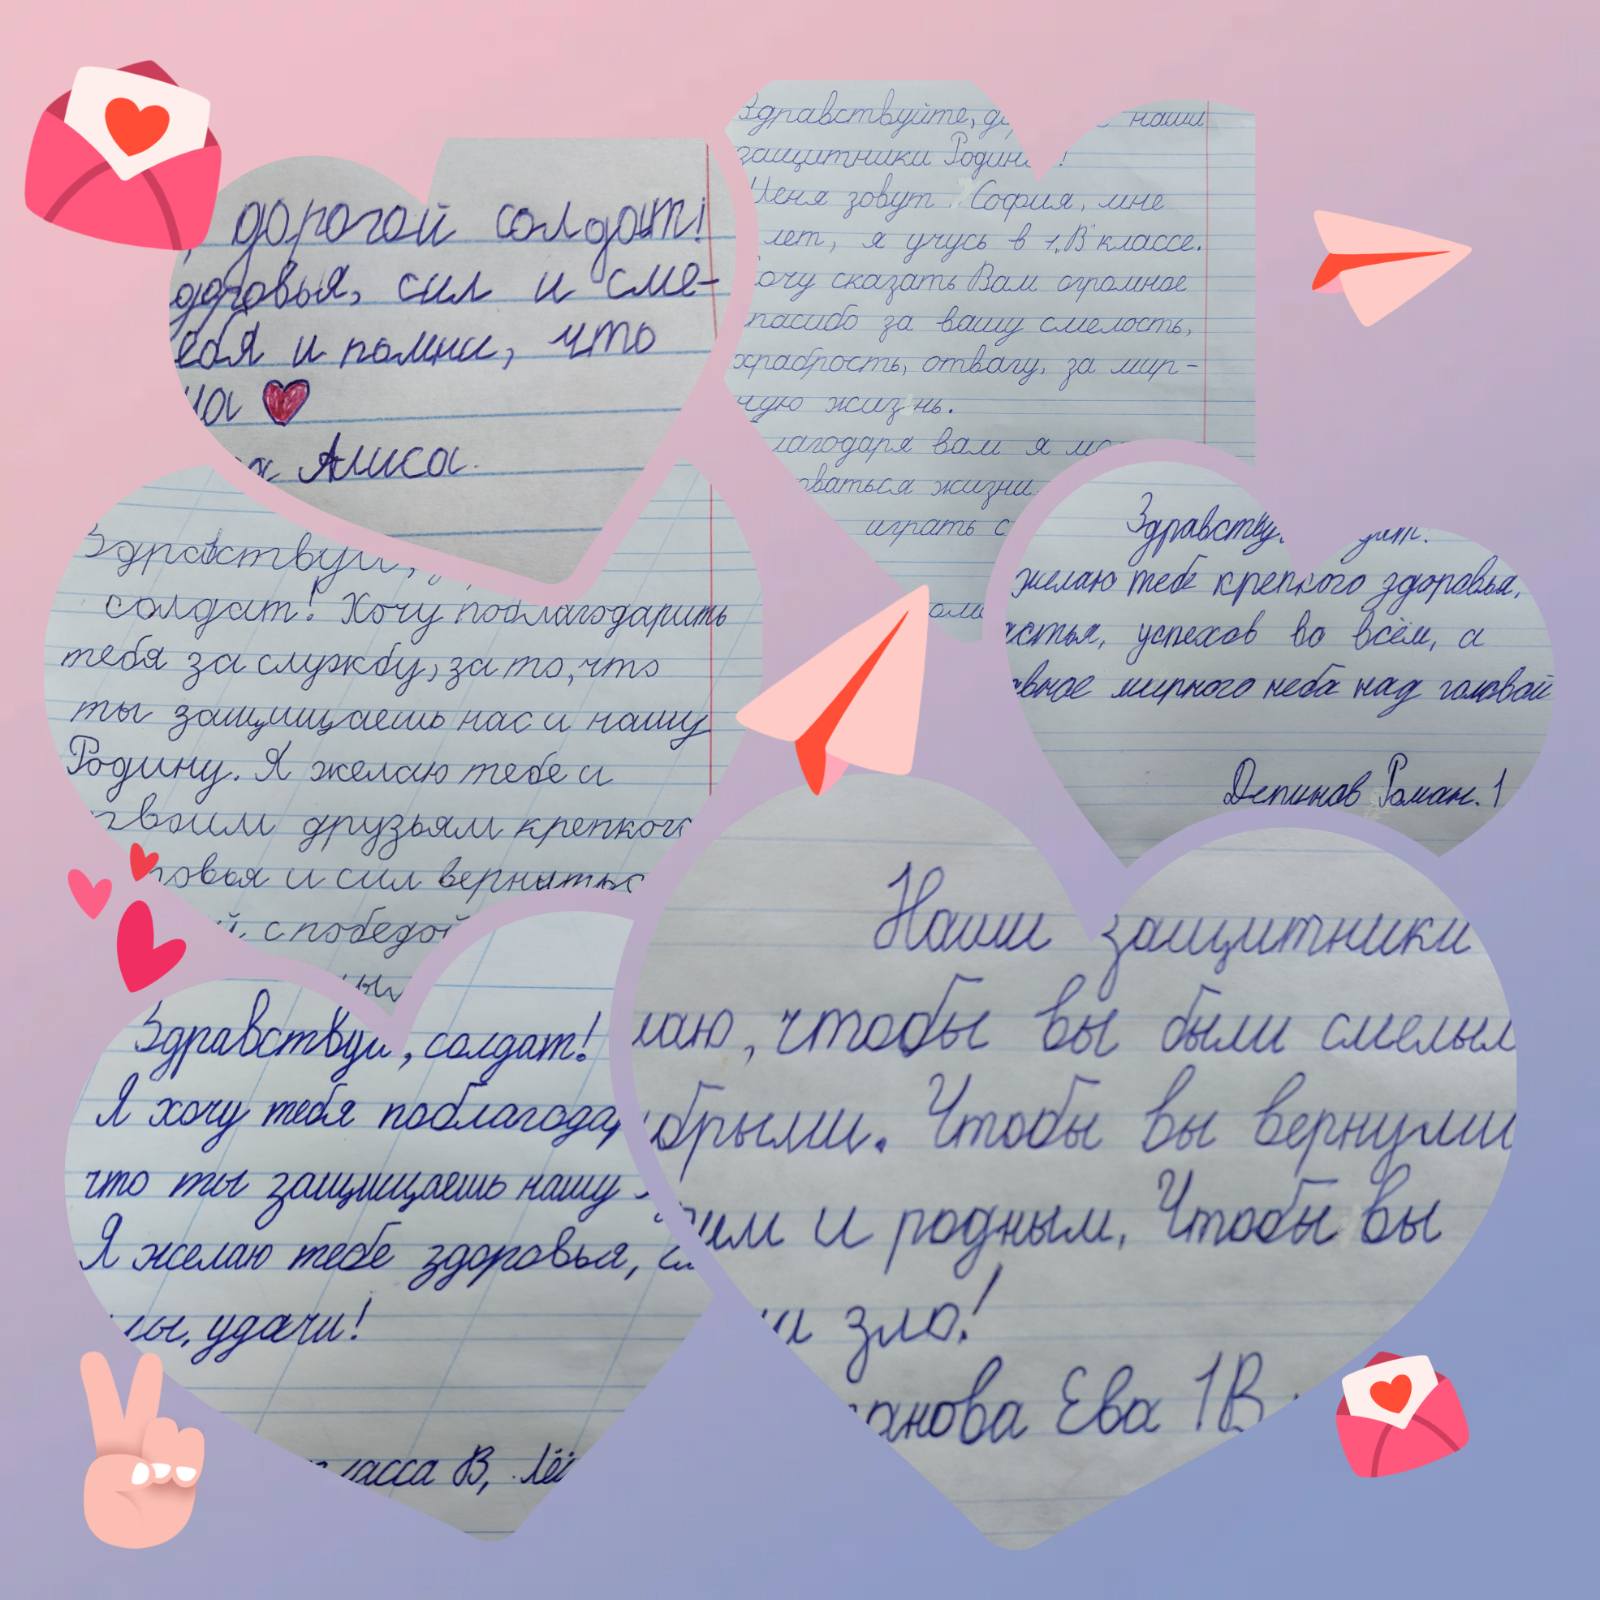 дорогой солдат!
доровья, сил и сме-
ебя и помни, что
Алиса.
Здравствуйте, наши
защитники
Меня зовут София, мне
лет, я учусь в 1"В" классе.
Хочу сказать Вам огромное
спасибо за вашу смелость,
храбрость, отвагу, за мир-
ную жизнь.
лагодаря вам я
оваться жизни
играть с
Здравствуй,
солдат! Хочу поблагодарить
тебя за службу, за то, что
ты защищаешь нас и нашу
Родину. Я желаю тебе и
твоим друзьям крепкого
овья и сил вернуться
с победой
Здравству
желаю тебе крепкого здоровья,
астья, успехов во всём, а
авное мирного неба над головой
Депинов Роман. 1
Здравствуй, солдат!
Я хочу тебя поблагодар
что ты защищаешь нашу
Я желаю тебе здоровья,
удачи!
ласса В,
Наши защитники
лаю, чтобы вы были смелым
обрыми. Чтобы вы вернули
и родным. Чтобы вы
зло!
анова Ева 1В